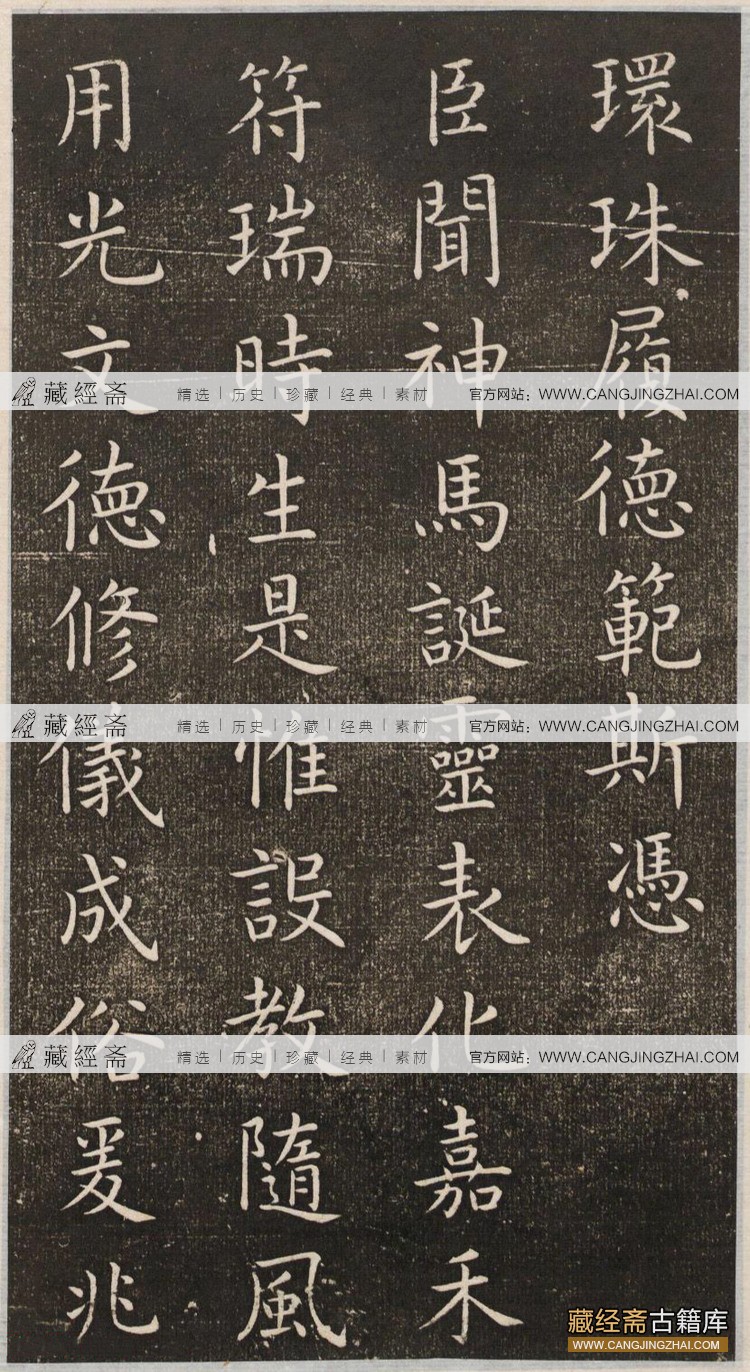 環珠履德範斯憑
臣聞神馬誕靈表化嘉禾
符瑞時生是惟設教隨風
用光文德修儀成俗爰兆
藏經斋 精选 | 历史 | 珍藏 | 经典 | 素材 官方网站：WWW.CANGJINGZHAI.COM
藏經斋 精选 | 历史 | 珍藏 | 经典 | 素材 官方网站：WWW.CANGJINGZHAI.COM
藏經斋 精选 | 历史 | 珍藏 | 经典 | 素材 官方网站：WWW.CANGJINGZHAI.COM
藏经斋古籍库
WWW.CANGJINGZHAI.COM